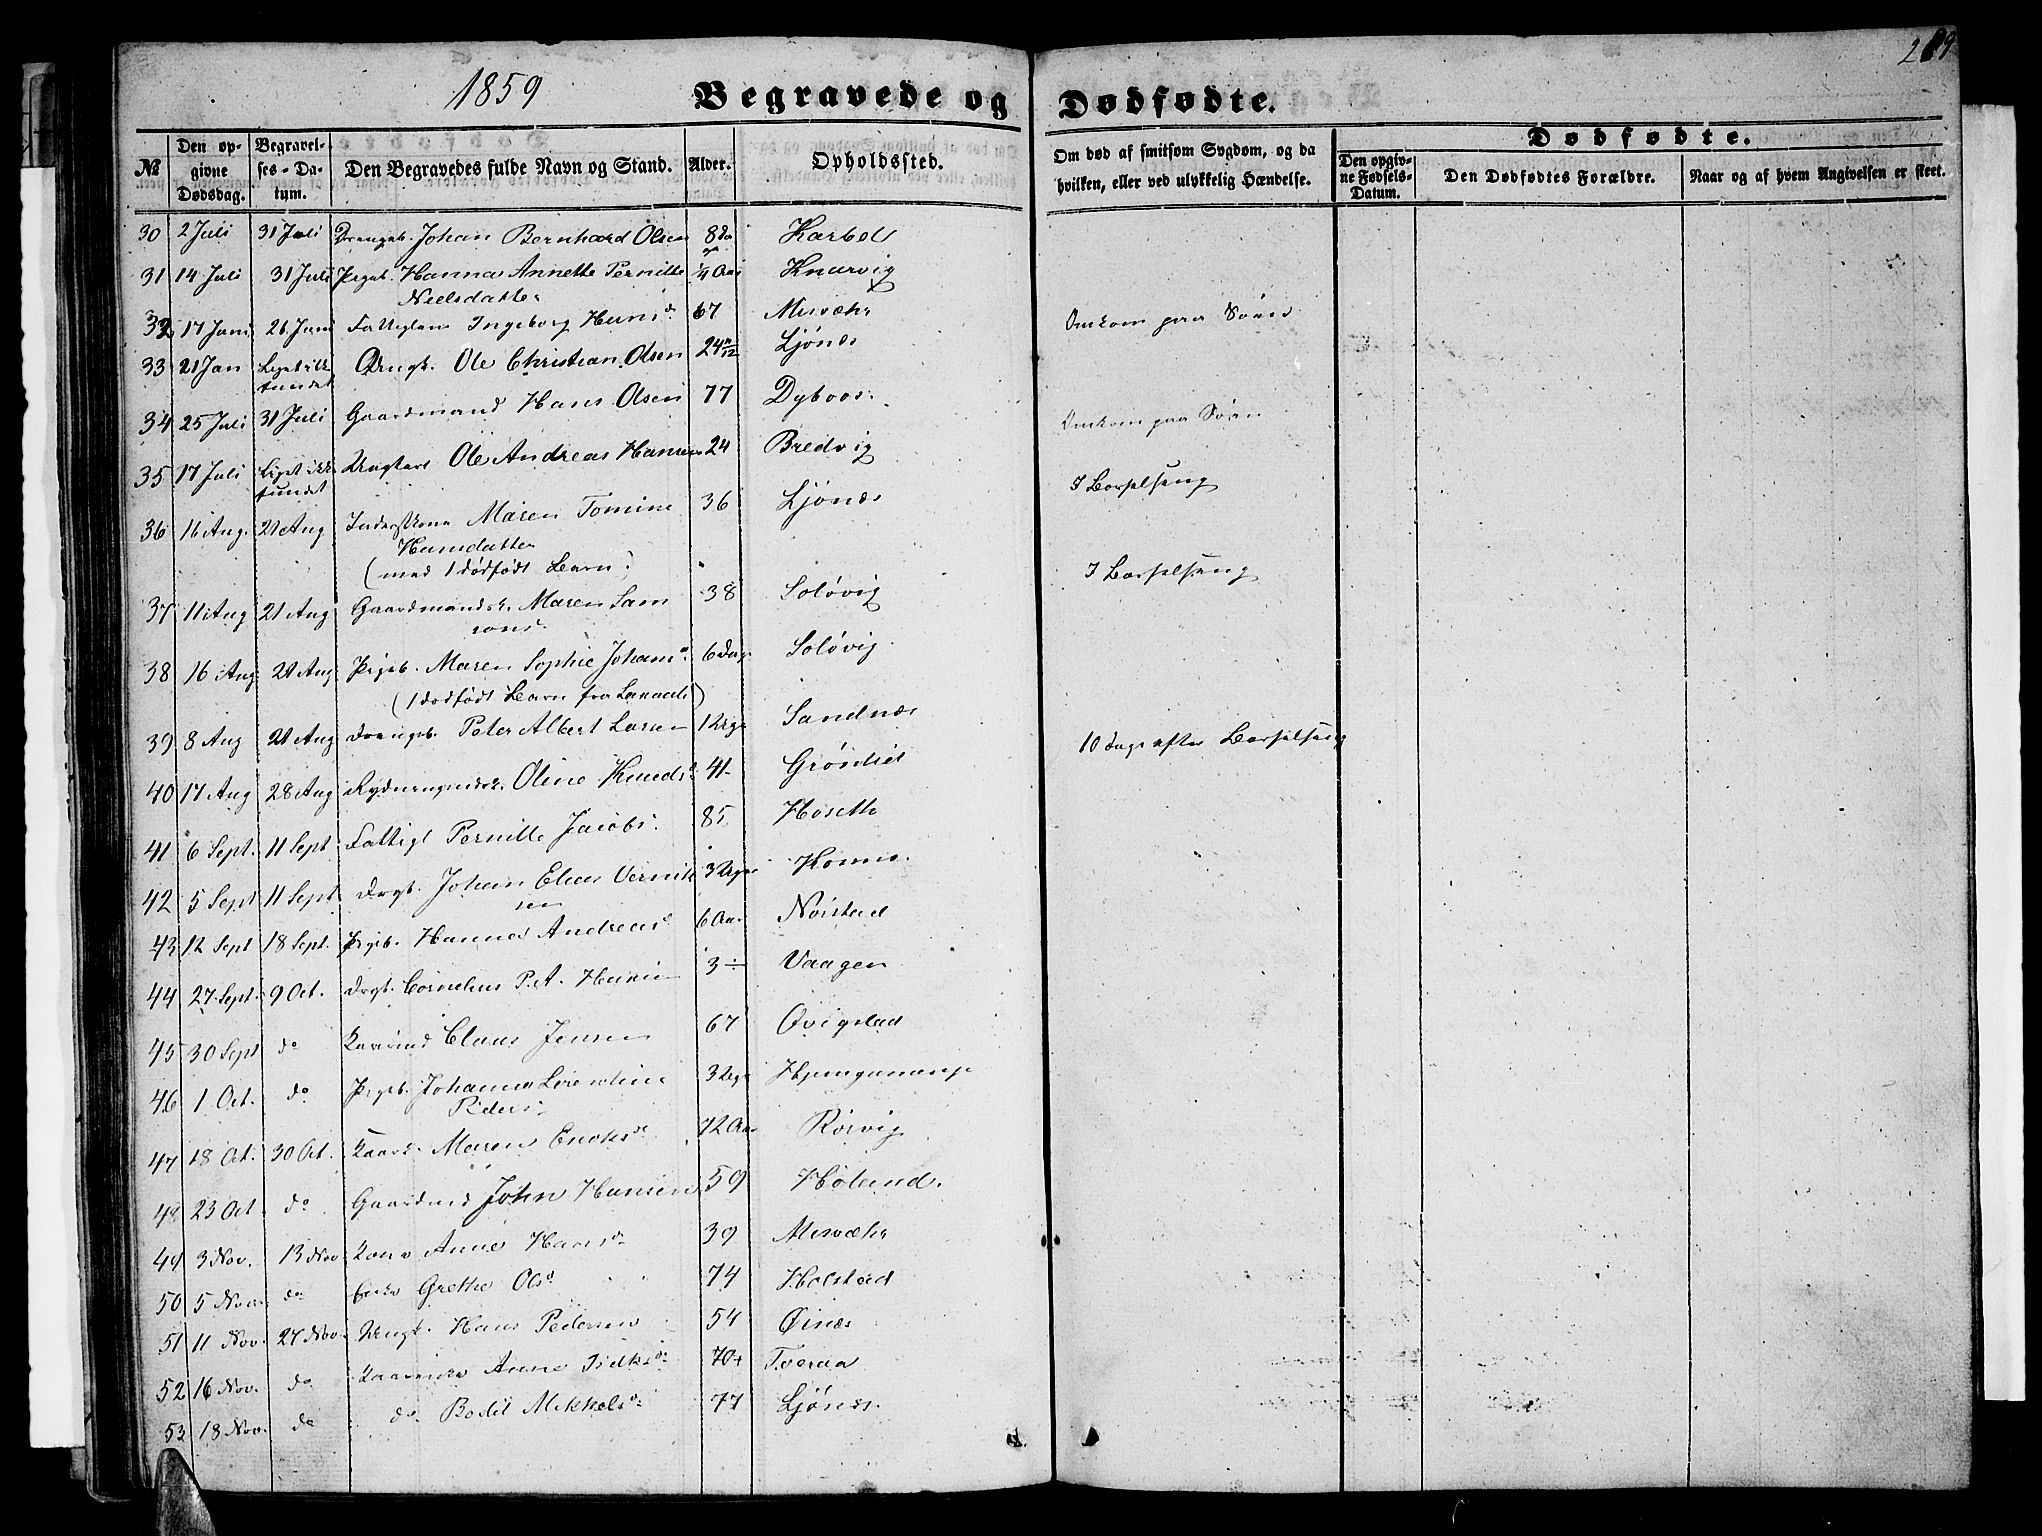 1859
Begravede og Dødfødte.
№
Den opgivne Dødsdag.
Begravelses-Datum.
Den Begravedes fulde Navn og Stand.
Alder.
Opholdssted.
Om død af smitsom Sygdom, og da hvilken, eller ved ulykkelig Hændelse.
Dødfødte.
Den opgivne Fødsels-Datum.
Den Dødfødtes Forældre.
Naar og af hvem Angivelsen er skeet.
30 2 Juli 31 Juli Drengeb. Johan Bernhard Olsen 8 Da
31 14 Juli 31 Juli Pigeb. Hanna Annette Pernille ¼ Aar Knarvig
Nielsdatter
32 17 Juni 26 Juni Ingeborg Hansd. 67 Misvær
33 21 Jan Liget ikke Ungk. Ole Christian Olsen 24 11/12 Ljønes Omkom paa Søen
fundet
34 25 Juli 31 Juli Gaardmand Hans Olsen 77
35 17 Juli Liget ikke Ungkarl Ole Andreas Hansen 24 Bredvig Omkom paa Søen
fundet
36 16 Aug. 21 Aug Maren Tomine 36 Ljønes I Barselseng
Hansdatter
(med 1 dødfødt Barn)
37 11 Aug 21 Aug Gaardmandsk. Maren Sam 38 Soløvig I Barselseng
sonsd.
38 16 Aug 21 Aug Pigeb. Maren Sophie Johansd. 6 Dage Soløvig
(1 dødfødt Barn fra
39 8 Aug 21 Aug Drengeb. Peter Albert Larsen 1 Uge Sandnæs
40 17 Aug 28 Aug Oline Knudsd. 41 10 Dage efter Barselseng
41 6 Sept. 11 Sept. Fattigl Pernille Jacobs. 85 Hoseth
42 5 Sept 11 Sept. Drgb. Johan Elias
sen
43 12 Sept 18 Sept. Pigeb. Hanna Andreasd 6 Aar
44 27 Sept. 9 Oct. Drgb. Cornelius P. A. Hansen 3 ÷ Vaagen
45 30 Sept do Claus Jensen 67
46 1 Oct. do Pigeb. Johanna Lorentine
Peders
47 18 Oct. 30 Oct. Maren Enoksd 72 Aar Rørvig
48 23 Oct do Gaardmd John Hansen 59
49 3 Nov. 13 Nov. Anne Hansd. 39 Misvær
50 5 Nov. do Enke Grethe Olsd. 74
51 11 Nov. 27 Nov. Ungk. Hans Pedersen 54 Øines
52 16 Nov. do Anne 70 + Tveraa
53 18 Nov. do do Bodil Mikkelsd. 77 Ljønes.